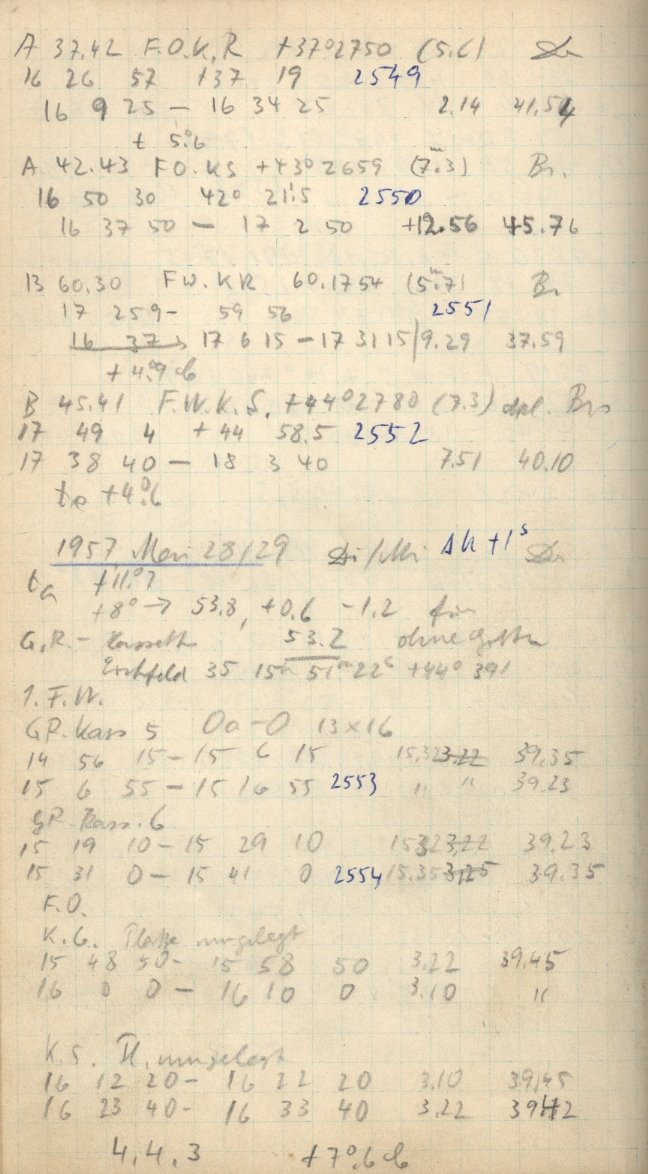 A 37.42 F.O.K.R +37°2750 (5.6)
16 26 57 +37 19 2549
16 9 25 – 16 34 25 2.14 41.54
t 5°.6
A 42.43 F.O.KS +43°2659 (7.3) Br.
16 50 30 42° 21'.5 2550
16 37 50 – 17 2 50 +12.56 45.76
B 60.30 F.W.KR 60.1754 (5.7) Br
17 259– 59 56 2551
16 37 17 6 15 – 17 31 15 9.29 37.59
+4°.9
B 45.41 F.W.K.S. +44°2780 (7.3) dpl. Br
17 49 4 +44 58.5 2552
17 38 40 – 18 3 40 7.51 40.10
+4°.6
1957 Mai 28/29 Δh +1s
ta +11°.7
+8° → 53.8, +0.6 –1.2 für
G.R.– 53.2 ohne
Eichfeld 35 15h 51m 22s +44° 39'
1. F.W.
GP. Kass 5 Oa–O 13×16
14 56 15 – 15 6 15 15.32 3.22 39.35
15 6 55 – 15 16 55 2553 " " 39.23
GP Kass. 6
15 19 10 – 15 29 10 15.32 3.22 39.23
15 31 0 – 15 41 0 2554 15.35 39.35
F.O.
Platte umgelegt
15 48 50 – 15 58 50 3.22 39.45
16 0 0 – 16 10 0 3.10 "
K.S. Pl. umgelegt
16 12 20 – 16 22 20 3.10 39.45
16 23 40 – 16 33 40 3.22 39.42
4,4,3 +7°.6